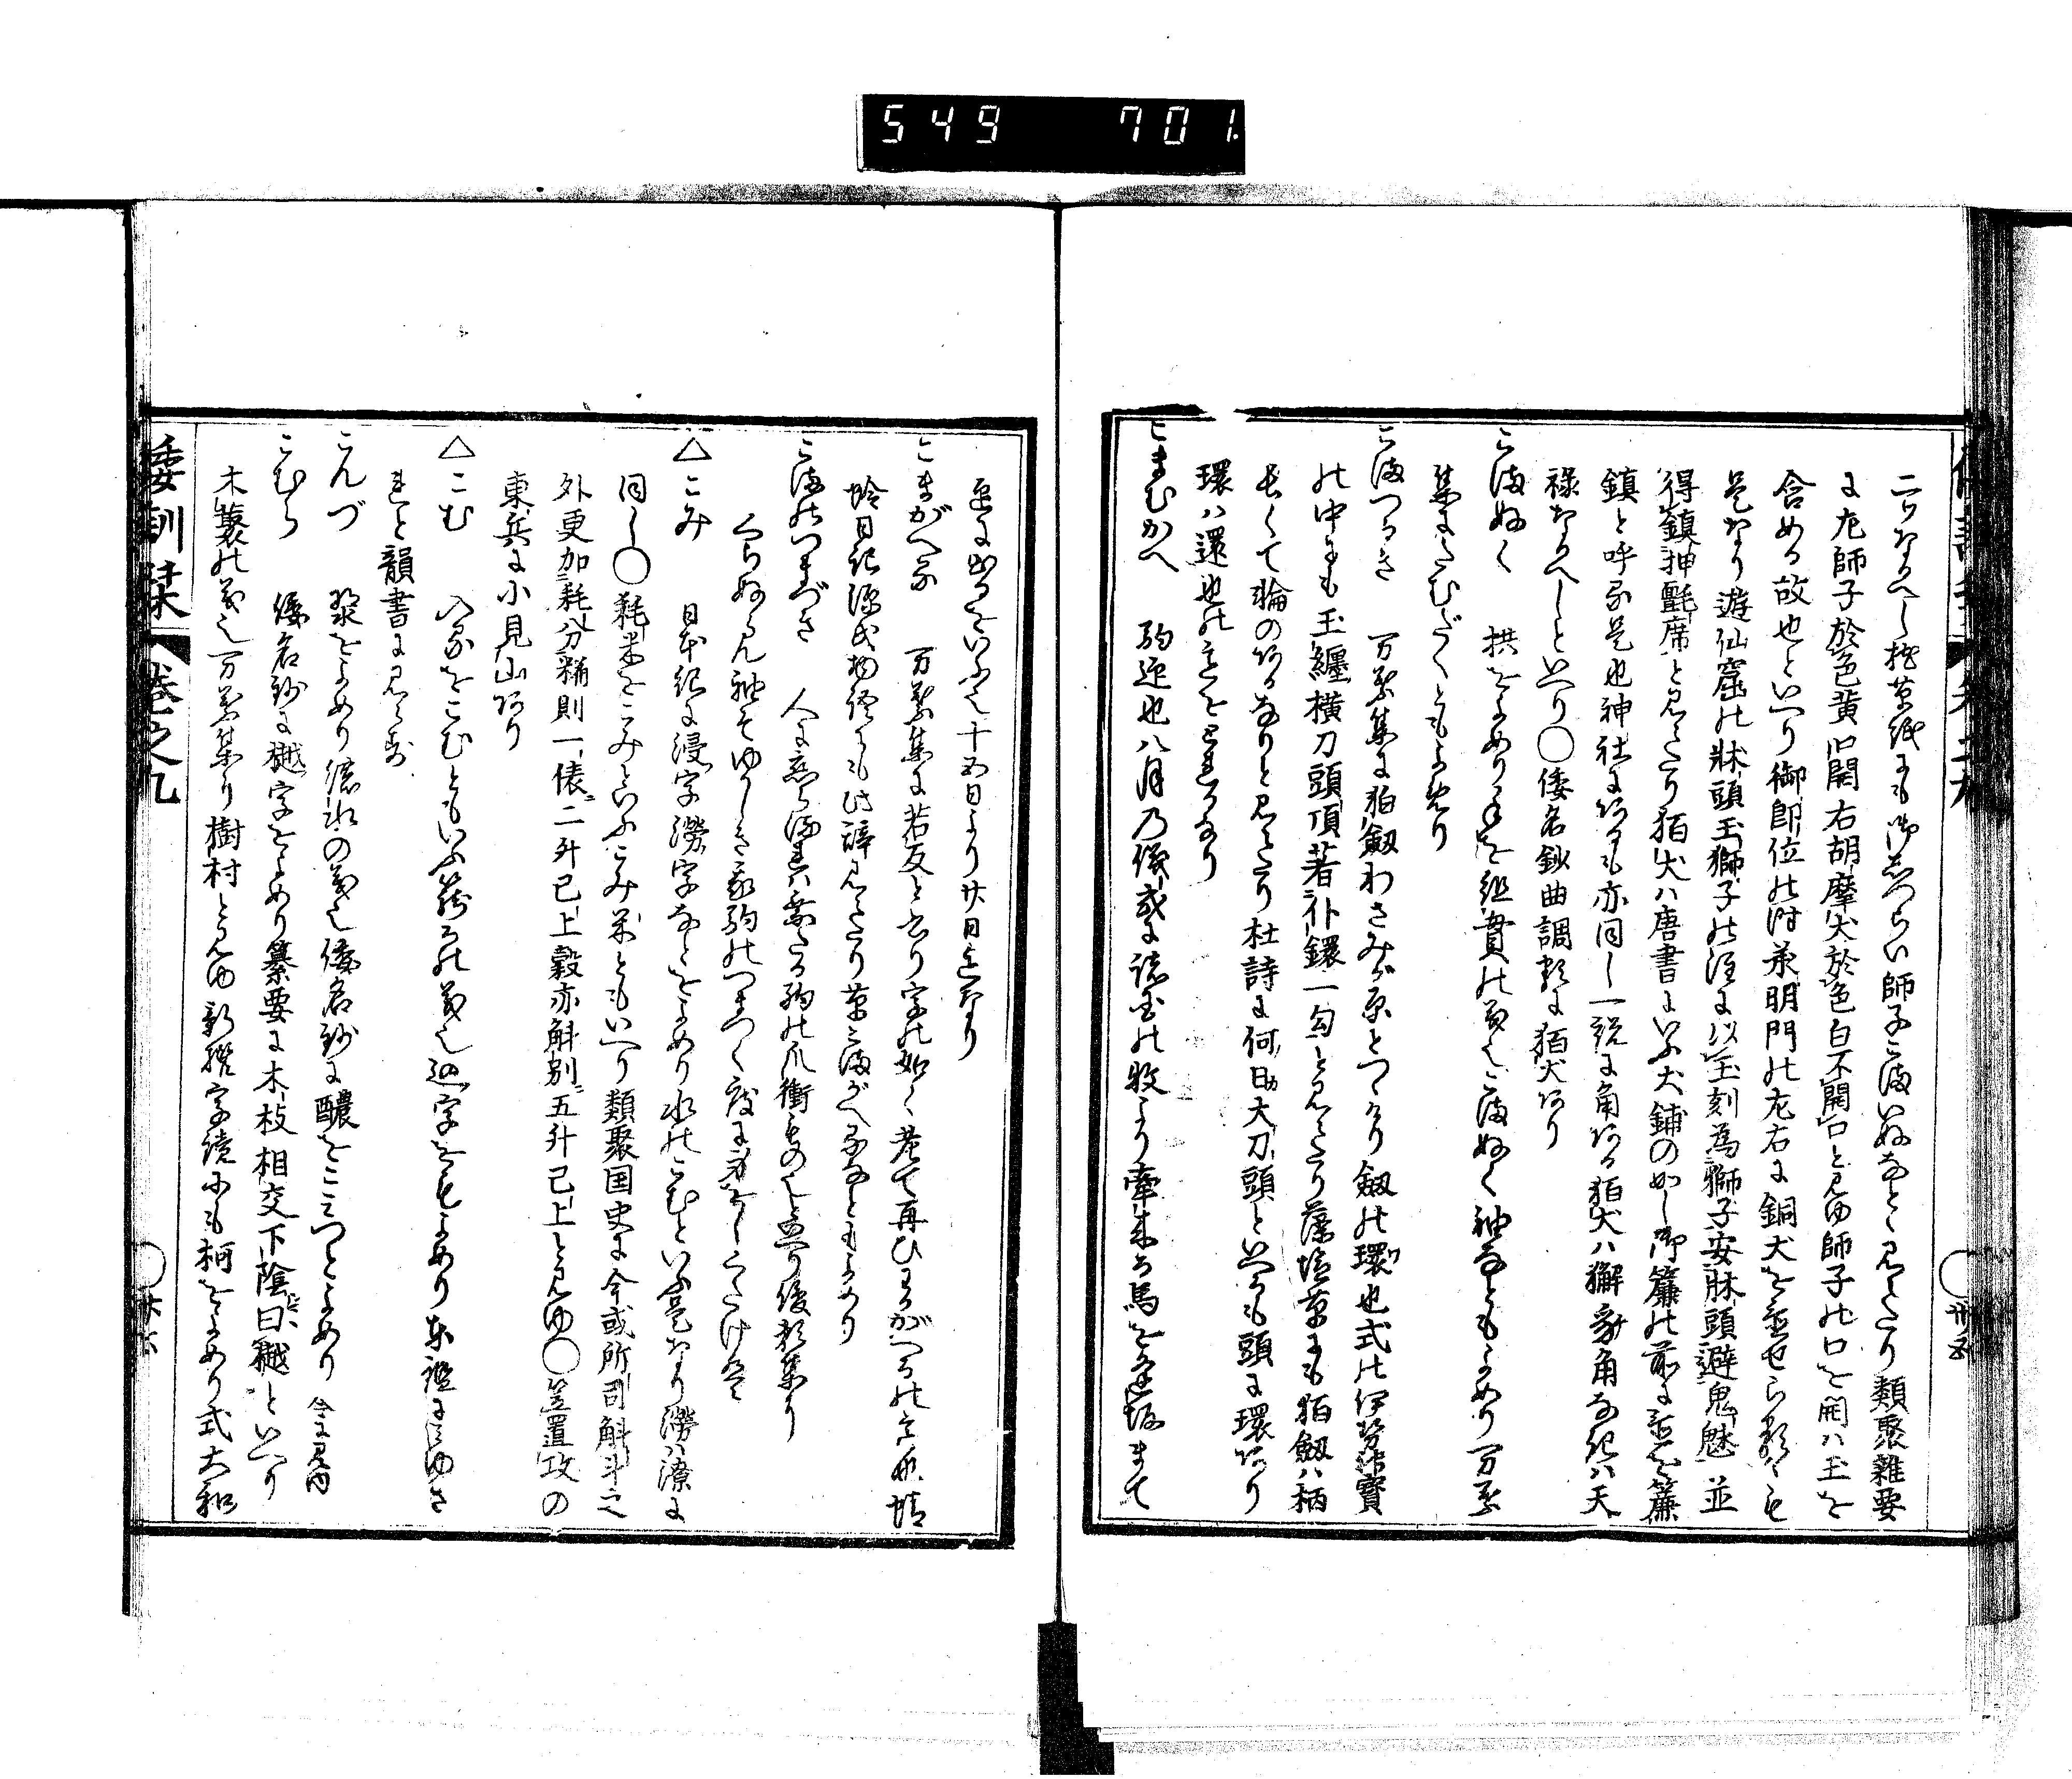 549 701.
二ツなるへし枕草紙にも御しつらひ師子こまいぬなとゝ見えたり類聚雑要
に左師子於色黄口開右胡摩犬於色白不開口と見ゆ師子の口を開ハ玉を
含める故也といへり御即位の時承明門の左右に銅犬を置せらるゝも
是なり遊仙窟の牀頭玉獅子の注に以玉刻為獅子安牀頭避鬼魅並
得鎮押氈席と見えたり狛犬ハ唐書にいふ犬鋪の如し御簾の前に置を簾
鎮と呼る是也神社にあるも亦同し一説に角ある狛犬ハ獬豸角なきハ天
禄なるへしといへり〇倭名鈔曲調類に狛犬あり
こまぬく 拱をよめり手を組貫の義也こまぬく袖なともよめり万葉
集にたむだくともよめり
こまつるき 万葉集に狛劔わさみが原とつゝけり劔の環也式の伊勢神宝
の中にも玉纏横刀頭頂著仆鐶一勾と見えたり藻塩草にも狛劔ハ柄
長くて輪のあるなりと見えたり杜詩に何日大刀頭といへるも頭に環あり
環ハ還也の意をとれるなり
こまむかへ 駒迎也八月乃儀式に諸国の牧より牽来る馬を逢坂まて
迎に出るをいふ也十五日より廿日迄なり
こまがへる 万葉集に若反と書り字の如く老て再ひわかがへるの意也蜻
蛉日記源氏物語にも此辞見えたり草こまがへるなともよめり
こまのつまづき 人に恋らるれハ乗たる駒の爪衝ものと云り後撰集り
くらぬらん袖そゆかしき我駒のつまつく度に
△こみ 日本紀に浸字澇字なとをよめり水のこむといふ是なり澇ハ潦に
同し〇耗米をこみといふこみ米ともいへり類聚国史に今或所司斛斗之
外更加耗分稱則一俵二升已上穀亦斛別五升已上と見ゆ〇笠置攻の
東兵に小見山あり
△こむ 入るをこむともいふ籠るの義也込字をもよめり東鑑に見ゆさ
れと韻書に見えす
こんづ 漿をよめり濃水の義也倭名鈔に醲をこみつとよめり
こむら 倭名鈔に樾字をよめり纂要に木枝相交下陰曰樾といへり
木叢の義也万葉集り樹村と見ゆ新撰字鏡にも柯をよめり式大和
倭訓栞 巻之九